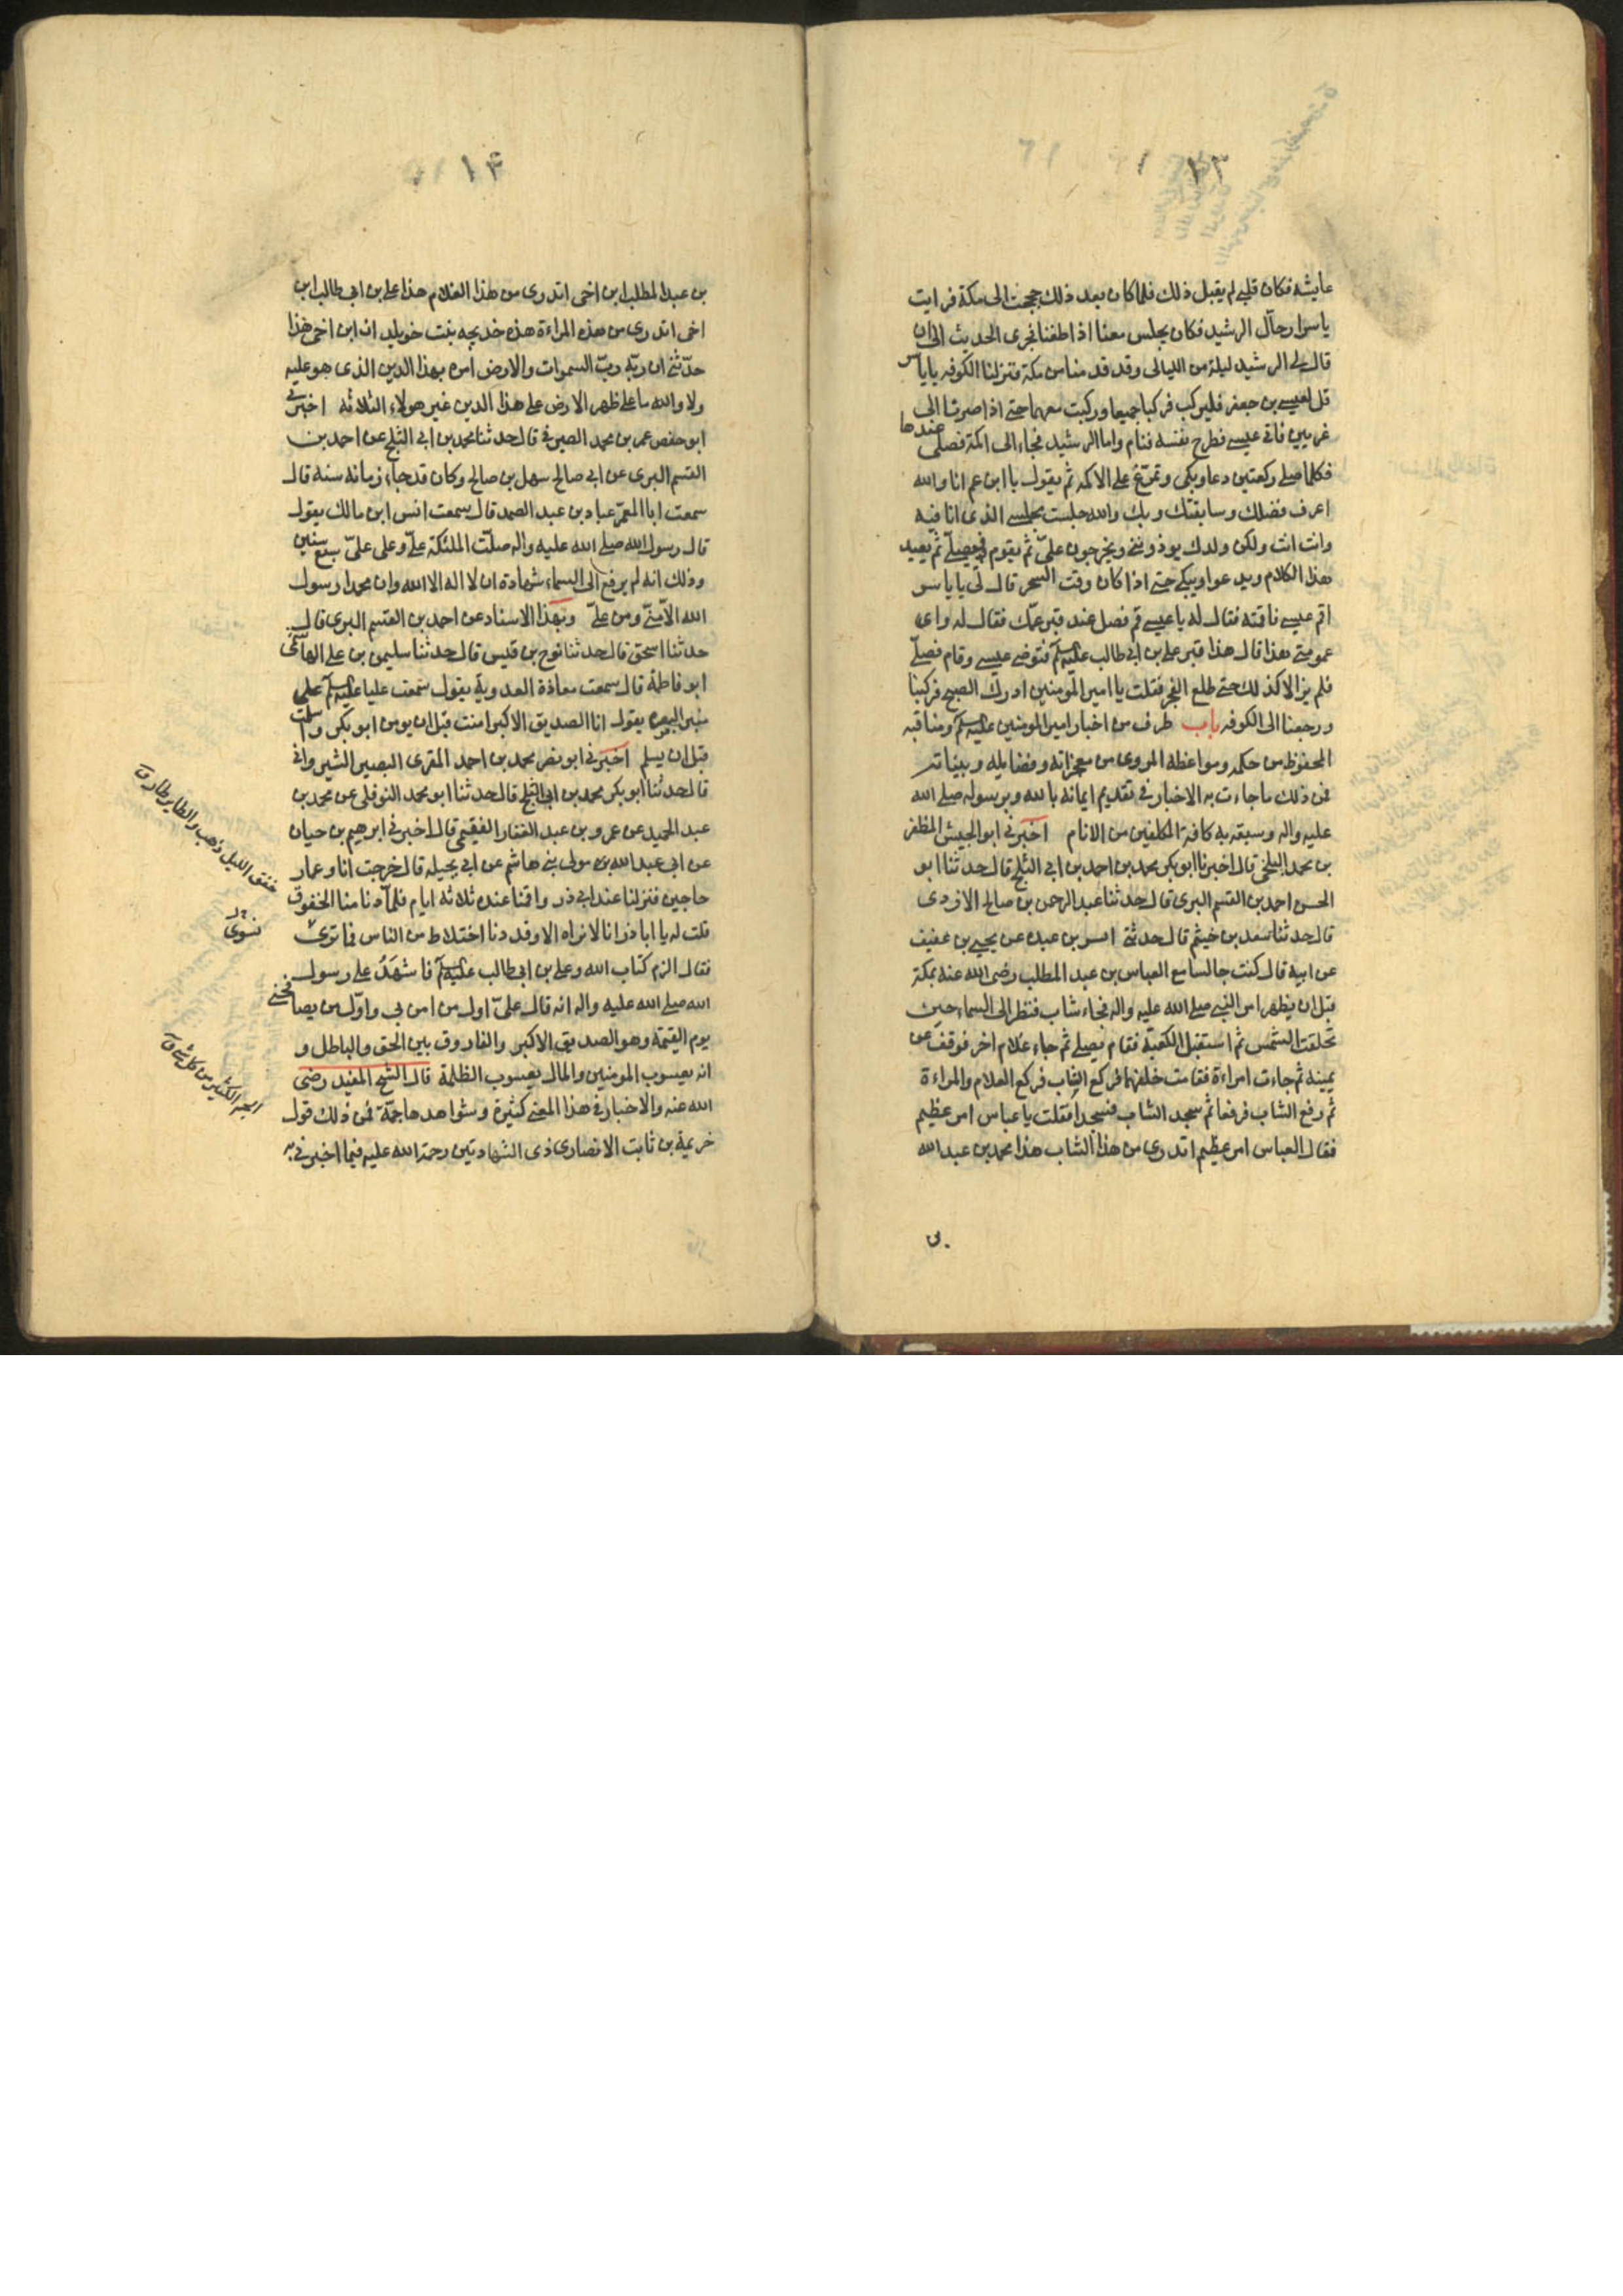 ١٣
عايشه فكان قلبي لم يقبل ذلك فلما كان بعد ذلك حججت الى مكة فرايت
ياسرا رحال الرشيد فكان يجلس معنا اذا طفنا فجرى الحديث الى ان
قال لي الرشيد ليلة من الليالى وقد قدمنا من مكة فنزلنا الكوفه يا ياسر
قل لعيسى بن جعفر فليركب فركبا جميعا وركبت معهما حتى اذا صرنا الى
غريين فاتى عيسى فطرح نفسه فنام واما الرشيد فجاء الى اكمة فصلى عندها
فكلما صلى ركعتين دعا وبكى وتمرغ على الاكمه ثم يقول يا ابن عم انا والله
اعرف فضلك وسابقتك وبك والله جلست مجلسى الذى انا فيه
وانت انت ولكن ولدك يوذونني ويخرجون علىّ ثم يقوم فيصلى ثم يعيد
هذا الكلام ويدعوا ويبكى حتى اذا كان وقت السحر قال لى يا ياسر
اقم عيسى فاقمته فقال له يا عيسى قم فصل عند قبر عمك فقال له واى
عمومتى هذا قال هذا قبر على بن ابى طالب عليه السلم فتوضى عيسى وقام فصلى
فلم يزالا كذلك حتى طلع الفجر فقلت يا امير المومنين ادرك الصبح فركبنا
ورجعنا الى الكوفه باب طرف من اخبار امير المومنين عليه السلم ومناقبه
المحفوظ من حكمه ومواعظه المروى من معجزاته وفضايله وبيناته
فمن ذلك ما جاءت به الاخبار فى تقديم ايمانه بالله وبرسوله صلى الله
عليه واله وسبقه به كافة المكلفين من الانام اخبرنى ابو الجيش المظفر
بن محمد البلخى قال اخبرنا ابو بكر محمد بن احمد بن ابى الثلج قال حدثنا ابو
الحسن احمد بن القسم البرى قال حدثنا عبد الرحمن بن صالح الازدى
قال حدثنا سعد بن خيثم قال حدثة اسد بن عبده عن يحيى بن عفيف
عن ابيه قال كنت جالسا مع العباس بن عبد المطلب رضى الله عنه بمكة
قبل ان يظهر امر النبى صلى الله عليه واله فجاء شاب فنظر الى السماء حين
تحلقت الشمس ثم استقبل الكعبة فقام يصلى ثم جاء غلام اخر فوقف عن
يمينه ثم جاءت امراءة فقامت خلفهما فركع الشاب فركع الغلام والمراءة
ثم رفع الشاب فرفعا ثم سجد الشاب فسجدا فقلت يا عباس امر عظيم
فقال العباس امر عظيم اتدرى من هذا الشاب هذا محمد بن عبد الله
بن
١۴
بن عبد المطلب ابن اخى اتدرى من هذا الغلام هذا على بن ابى طالب ابن
اخى اتدرى من هذه المراءة هذه خديجه بنت خويلد ان ابن اخى هذا
حدثنى ان ربه ربّ السموات والارض امره بهذا الدين الذى هو عليه
ولا والله ما على ظهر الارض على هذا الدين غير هولاء الثلاثه اخبرنى
ابو حفص عمر بن محمد الصيرفى قال حدثنا محمد بن ابى الثلج عن احمد بن
القسم البرى عن ابى صالح سهل بن صالح وكان قد جاء زمانه سنه قال
سمعت ابا المعمّر عباد بن عبد الصمد قال سمعت انس ابن مالك يقول
قال رسول الله صلى الله عليه واله صلّت الملئكة علىّ وعلى علىّ سبع سنين
وذلك انه لم يرفع الى السماء شهادة ان لا اله الا الله وان محمدا رسول
الله الّا منّى ومن علىّ وبهذا الاسناد عن احمد بن القسم البرى قال
حدثنا اسحق قال حدثنا نوح بن قيس قال حدثنا سليمن بن على الهاشمى
ابو فاطمة قال سمعت معاذة العدوية يقول سمعت عليا عليه السلم على
منبر البصره يقول انا الصديق الاكبر امنت قبل ان يومن ابو بكر واسلمت
قبل ان يسلم اخبرنى ابو نصر محمد بن احمد المقرى البصير الشيروانى
قال حدثنا ابو بكر محمد بن ابى الثلج قال حدثنا ابو محمد النوفلى عن محمد بن
عبد الحميد عن عمرو بن عبد الغفار الفقيمى قال اخبرنى ابرهيم بن حيان
عن ابى عبد الله مولى بنى هاشم عن ابى بحيله قال خرجت انا وعمار
حاجين فنزلنا عند ابى ذر واقمنا عنده ثلاثه ايام فلما دنا منا الخفوق
قلت له يا ابا ذر انا لا نراه الا وقد دنا اختلاط من الناس فما ترى
فقال الزم كتاب الله وعلى بن ابى طالب عليه السلم فاشهَدُ على رسول
الله صلى الله عليه واله انه قال علىّ اول من امن بى واوّل من يصافحنى
يوم القيمة وهو الصديق الاكبر والفاروق بين الحق والباطل و
انه يعسوب المومنين والمال يعسوب الظلمة قال الشيخ المفيد رضى
الله عنه والاخبار فى هذا المعنى كثيرة وشواهدها جمّة فمن ذلك قول
خزيمة بن ثابت الانصارى ذى الشهادتين رحمة الله عليه فيما اخبرنى به
خفق الليل ذهب والطاير طار ق
الجم الكثير من كل شئ ق